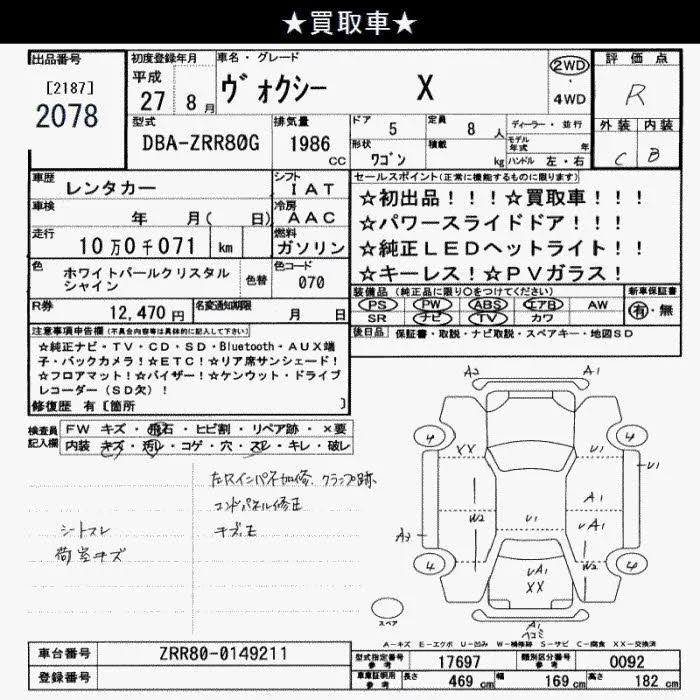 ★買取車★
出品番号
[2187]
2078
初度登録年月
平成
27 8月
車名・グレード
ヴォクシー X
2WD
・
4WD
評価点
R
外装 内装
C B
型式
DBA-ZRR80G
排気量
1986
CC
ドア
5
定員
8 人
形状
ワゴン
積載
kg
ディーラー・並行
モデル年式 年
ハンドル 左・右
車歴
レンタカー
シフト
IAT
車検
年 月( 日)
冷房
AAC
走行
10万0千071 km
燃料
ガソリン
色
ホワイトパールクリスタル
シャイン
色替
色コード
070
R券
12,470円
名変通知期限
月 日
セールスポイント(正常に機能するものに限ります)
☆初出品!!!☆買取車!!!
☆パワースライドドア!!!
☆純正LEDヘットライト!!!
☆キーレス!☆PVガラス!
装備品(純正品に限り○をつけてください)
PS PW ABS エアB AW
SR ナビ TV カワ
新車保証書
有・無
後日品 保証書・取説・ナビ取説・スペアキー・地図SD
注意事項申告欄(不具合内容等は具体的に記入して下さい)
☆純正ナビ・TV・CD・SD・Bluetooth・AUX端
子・バックカメラ!☆ETC!☆リア席サンシェード!
☆フロアマット!☆バイザー!☆ケンウット・ドライブ
レコーダー(SD欠)!
修復歴 有[箇所 ]
検査員
記入欄
FW キズ・飛石・ヒビ割・リペア跡・×要
内装 キズ・汚レ・コゲ・穴・スレ・キレ・破レ
左Rインパネ加修、クランプ跡
コンドパネル修正
キズ、エ
シートスレ
荷室キズ
A2 A1
4 4
XX U1
U1
A1
W2 U1 UA1
A2
W2
4 4
UA1
XX
A1
スペア
A-キズ E-エクボ U-凹み W-補修跡 S-サビ C-腐食 XX-交換済
車台番号
ZRR80-0149211
登録番号
型式指定番号
参考
17697
類別区分番号
参考
0092
車庫証明用
参考
長さ
469 cm
幅
169 cm
高さ
182 cm